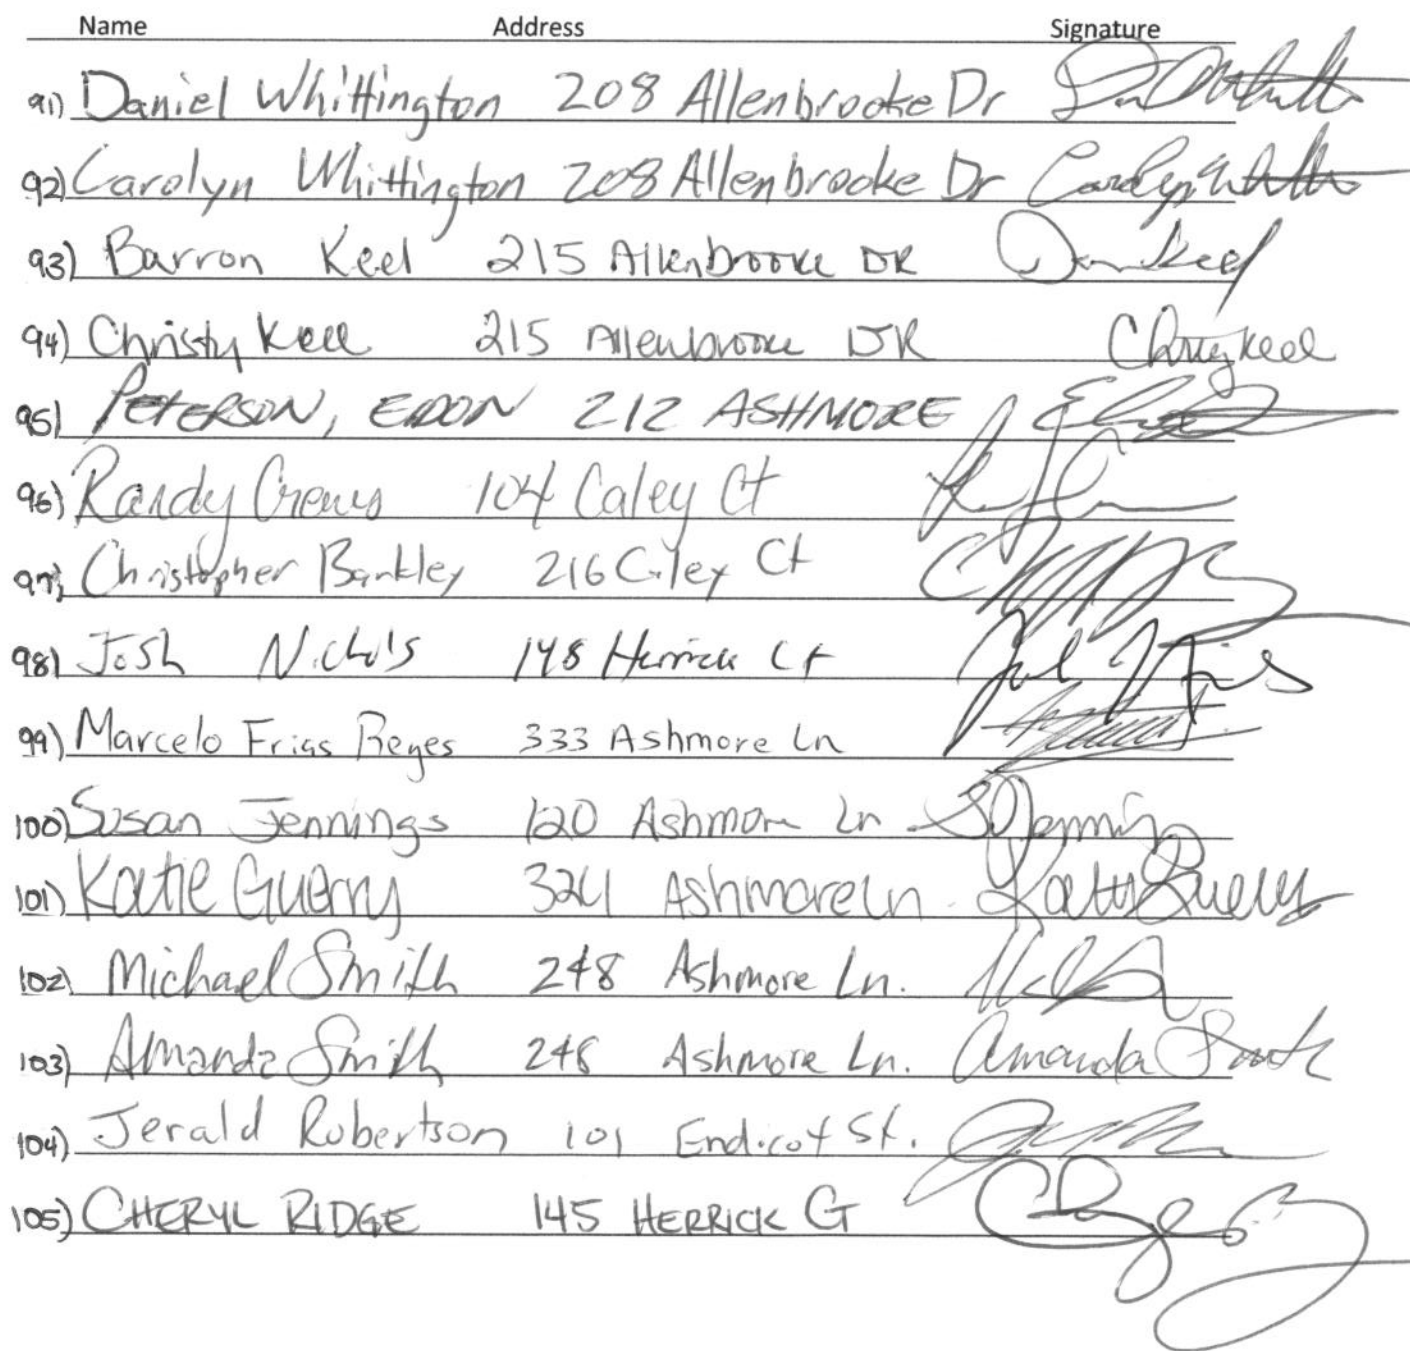 Name Address Signature
91) Daniel Whittington 208 Allenbrooke Dr
92) Carolyn Whittington 208 Allenbrooke Dr
93) Barron Keel 215 Allenbrooke DR
94) Christy Keel 215 Allenbrooke DR Christy Keel
95) PETERSON, 212 ASHMORE
96) Randy Crews 104 Caley Ct
97) Christopher Barkley 216 Caley Ct
98) Josh Nichols 148 Herrick Ct
99) Marcelo Frias Reyes 333 Ashmore Ln
100) Susan Jennings 120 Ashmore Ln
101) Katie Guerry Ashmore Ln
102) Michael Smith 248 Ashmore Ln.
103) Amanda Smith 248 Ashmore Ln. Amanda Smith
104) Jerald Robertson 101 Endicot St.
105) CHERYL RIDGE 145 HERRICK CT